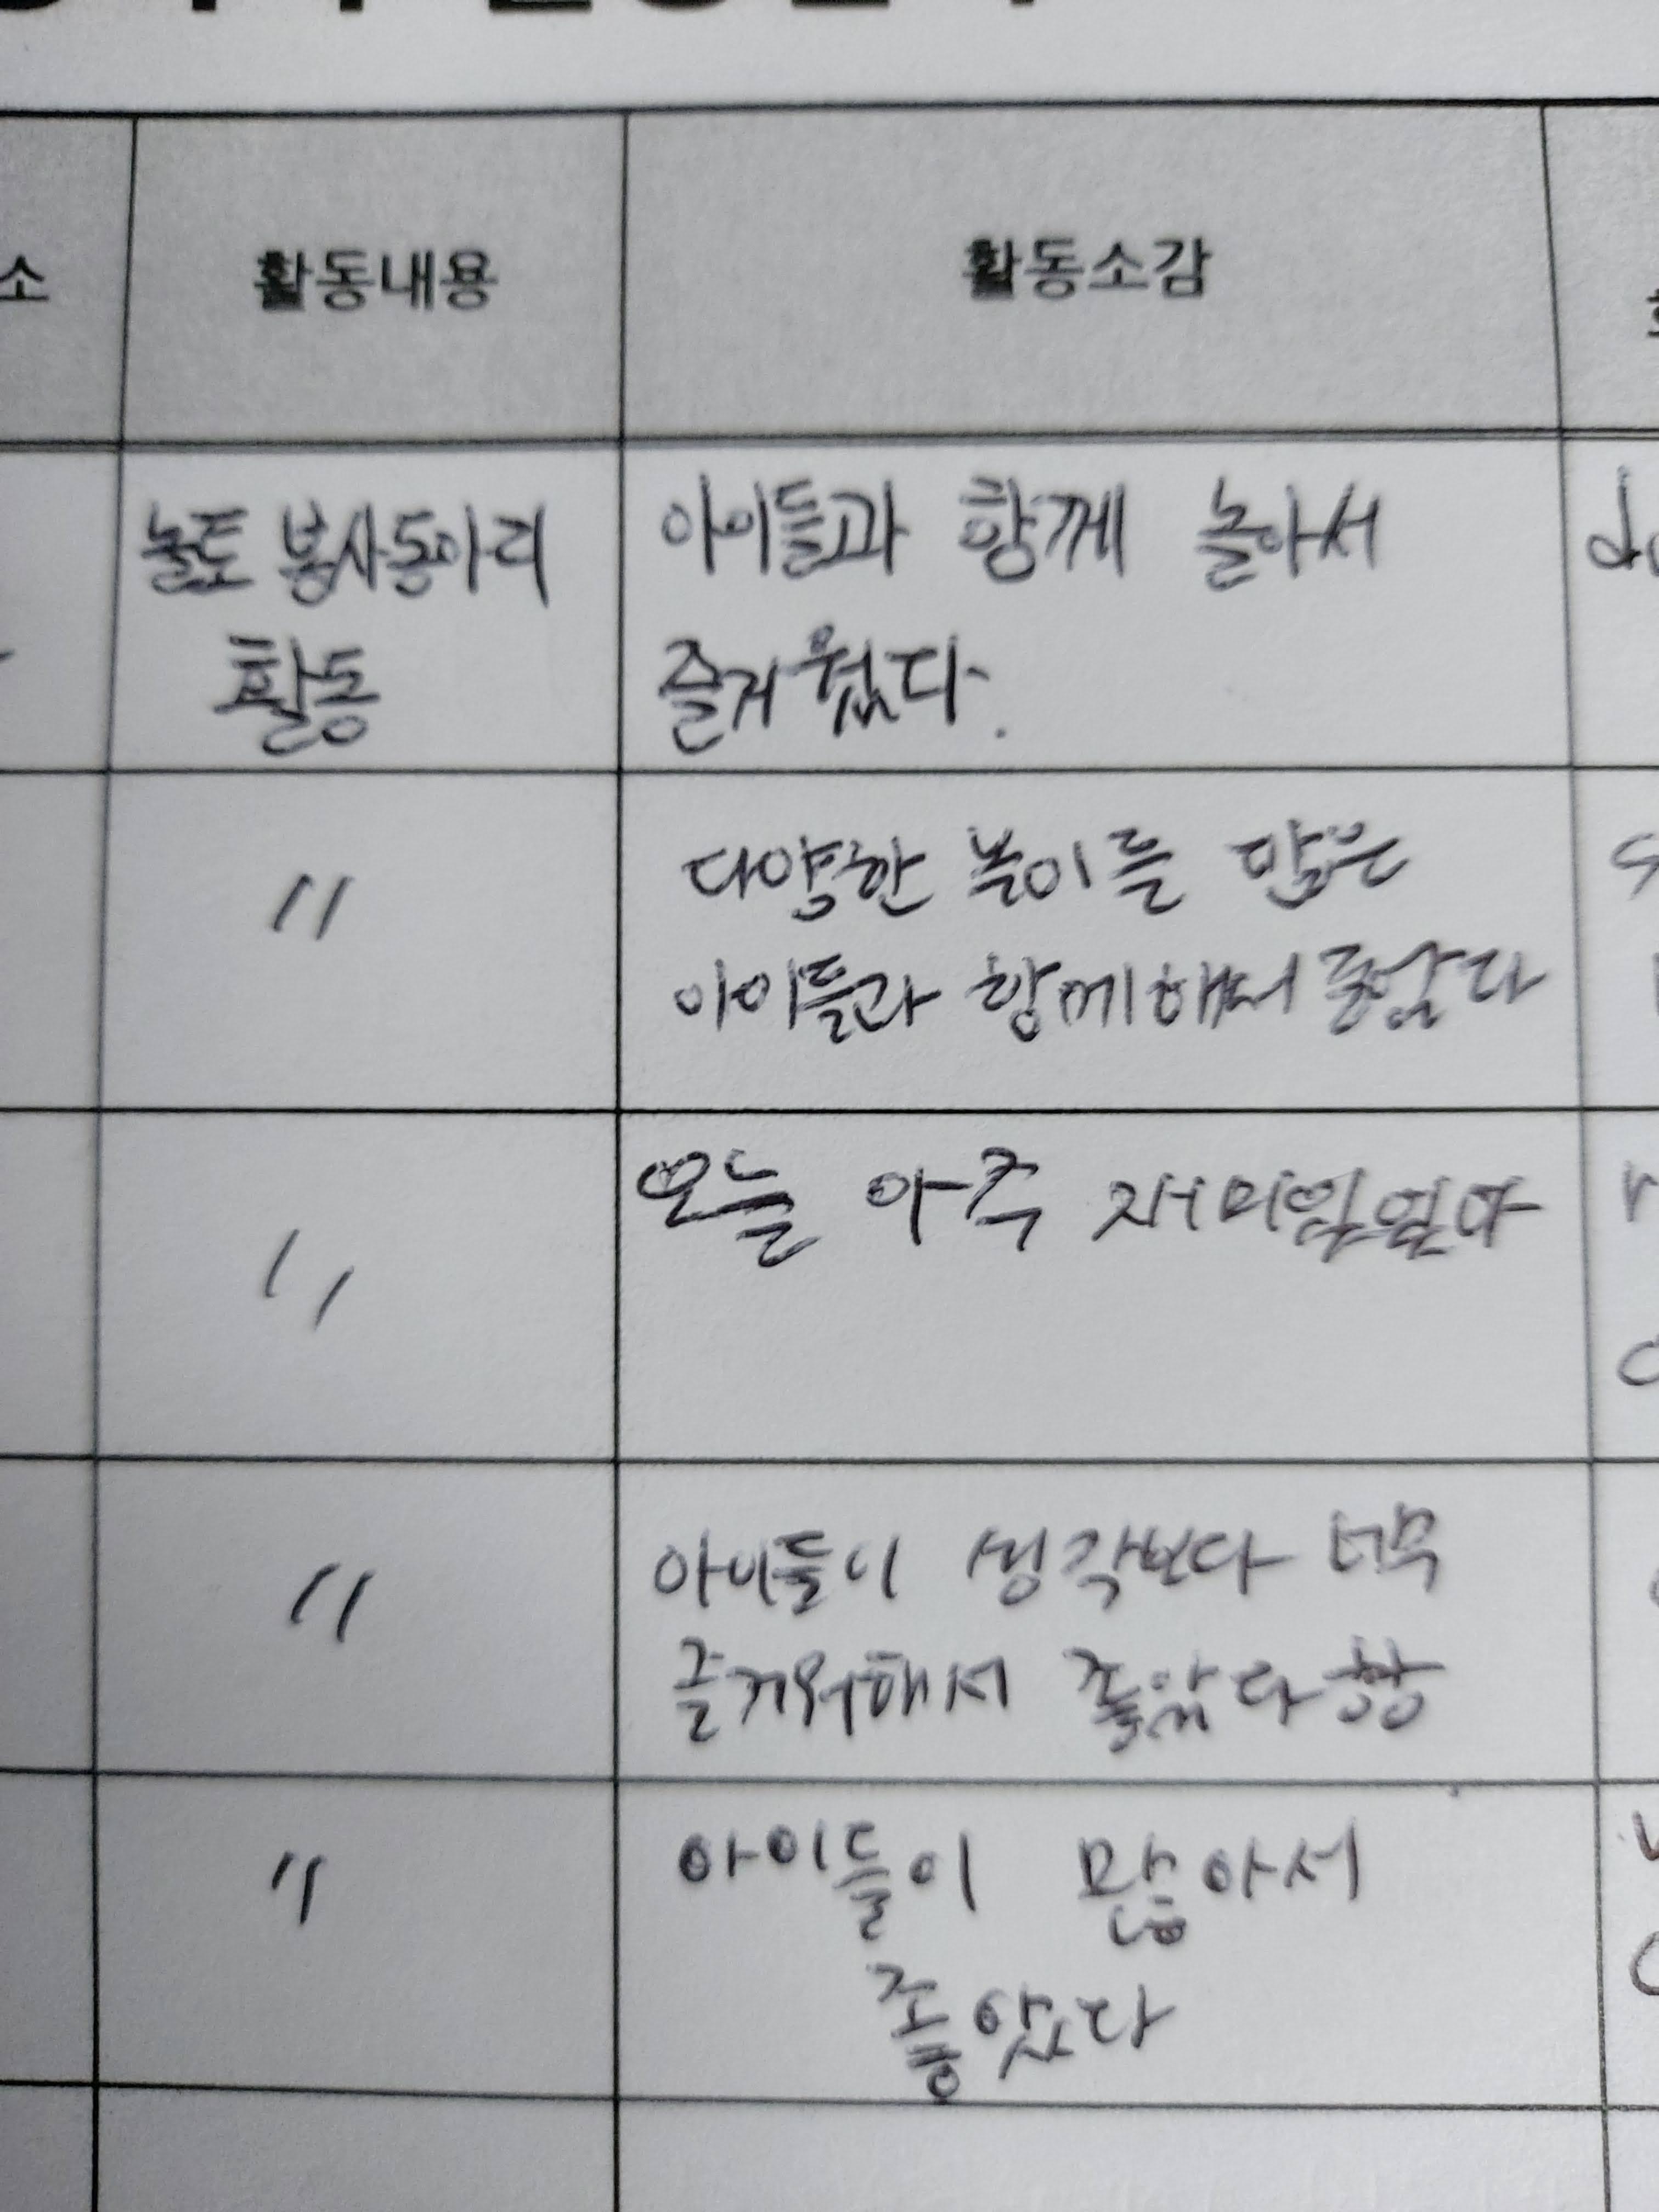 소 활동내용 활동소감
놀토 봉사동아리
활동
아이들과 함께 놀아서
즐거웠다.
〃
다양한 놀이를 많은
아이들과 함께해서 좋았다
〃
오늘 아주 재미있었다
〃
아이들이 생각보다 너무
즐거워해서 좋았다함
〃
아이들이 많아서
좋았다